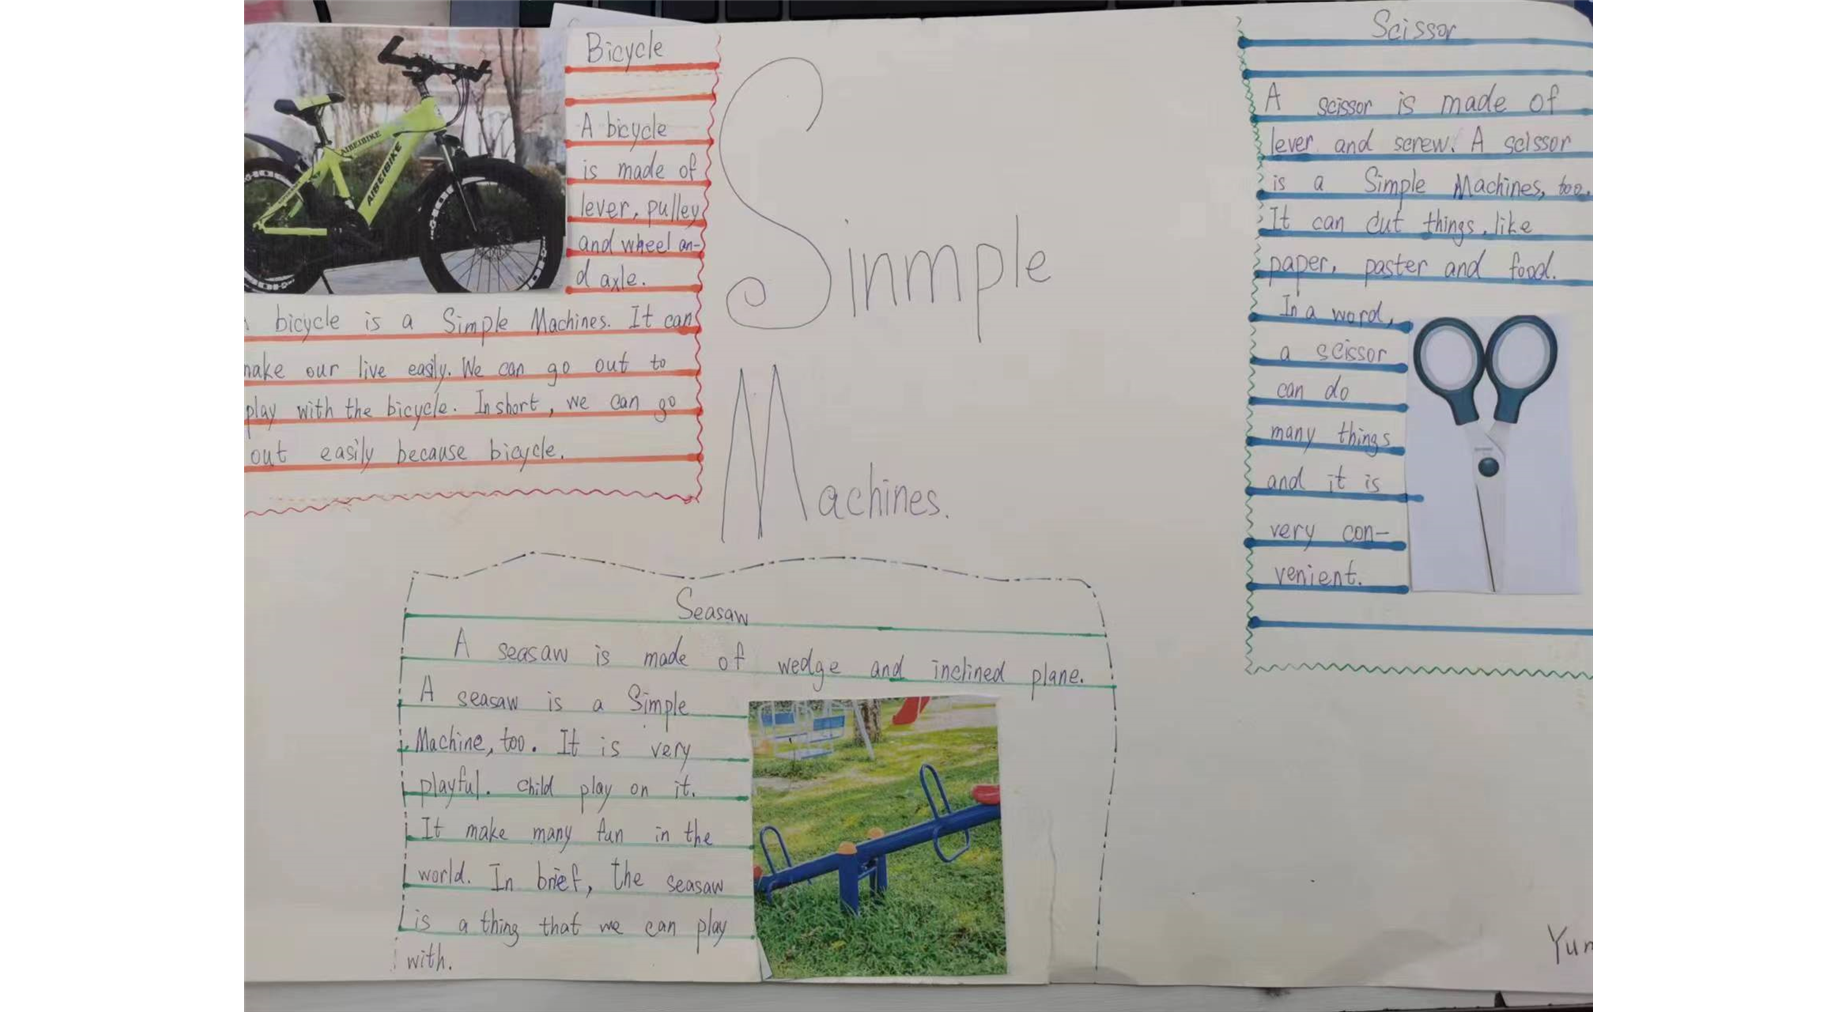 Bicycle
A bicycle
is made of
lever, pulley
and wheel an-
d axle.
bicycle is a Simple Machines. It can
make our live easily. We can go out to
play with the bicycle. In short, we can go
out easily because bicycle.
AIBEIBIKE
AIBEIBIKE
Sinmple
Machines.
Scissor
A scissor is made of
lever and screw. A scissor
is a Simple Machines, too.
It can cut things, like
paper, paster and food.
In a word,
a scissor
can do
many things
and it is
very con-
venient.
Seasaw
A seasaw is made of wedge and inclined plane.
A seasaw is a Simple
Machine, too. It is very
playful. Child play on it.
It make many fun in the
world. In brief, the seasaw
is a thing that we can play
with.